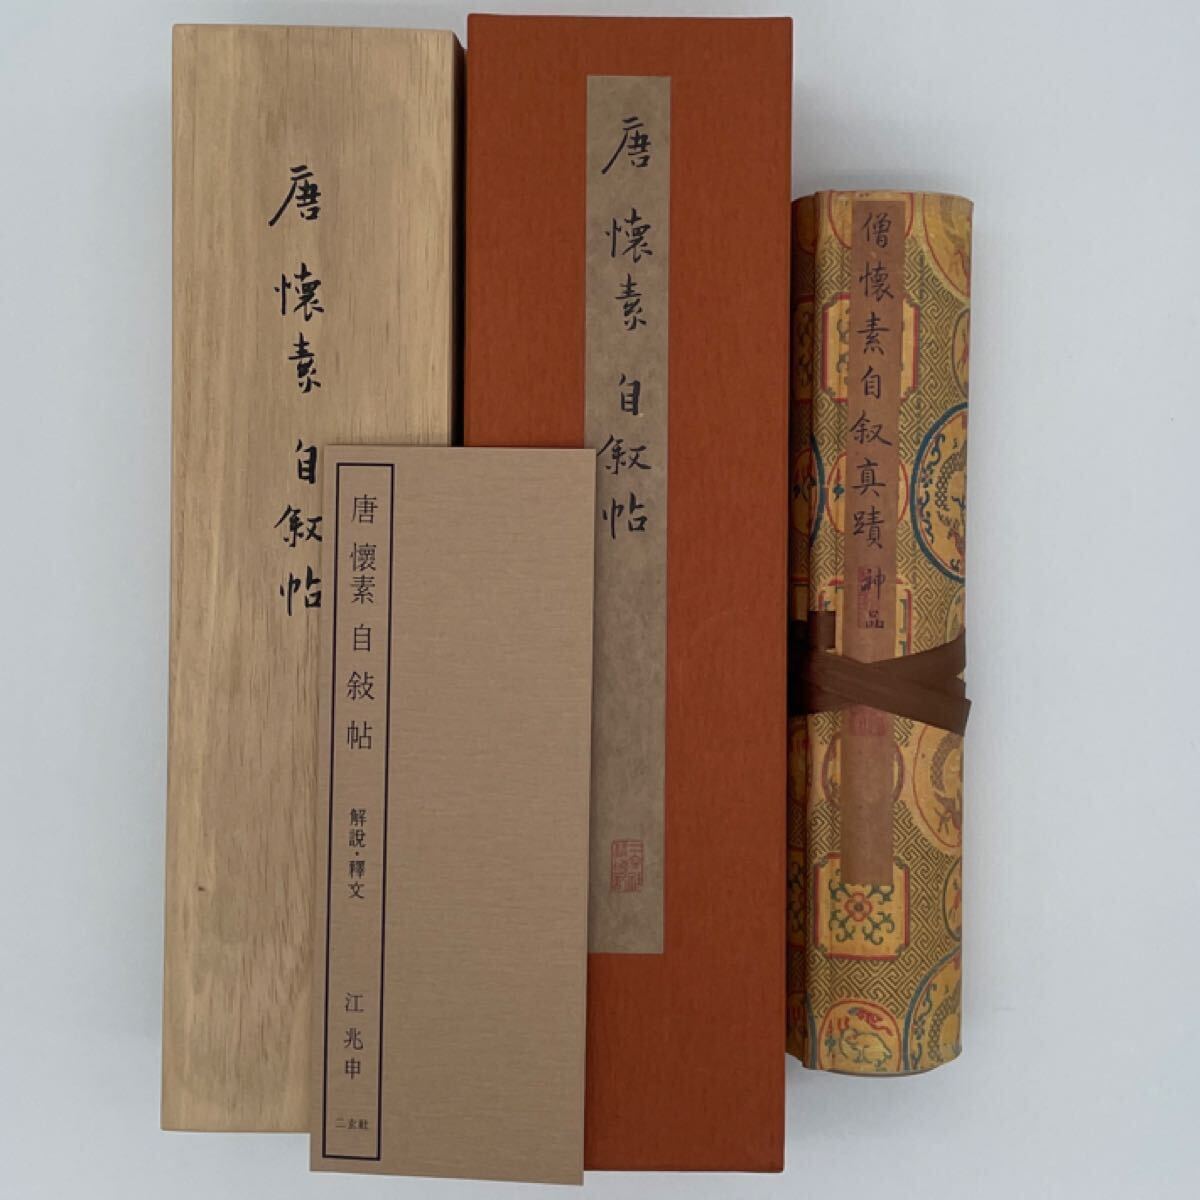 唐 懷素 自叙帖
唐 懷素 自叙帖
僧懷素自叙真蹟 神品
唐 懷素 自敍帖 解說・釋文 江兆申
二玄社